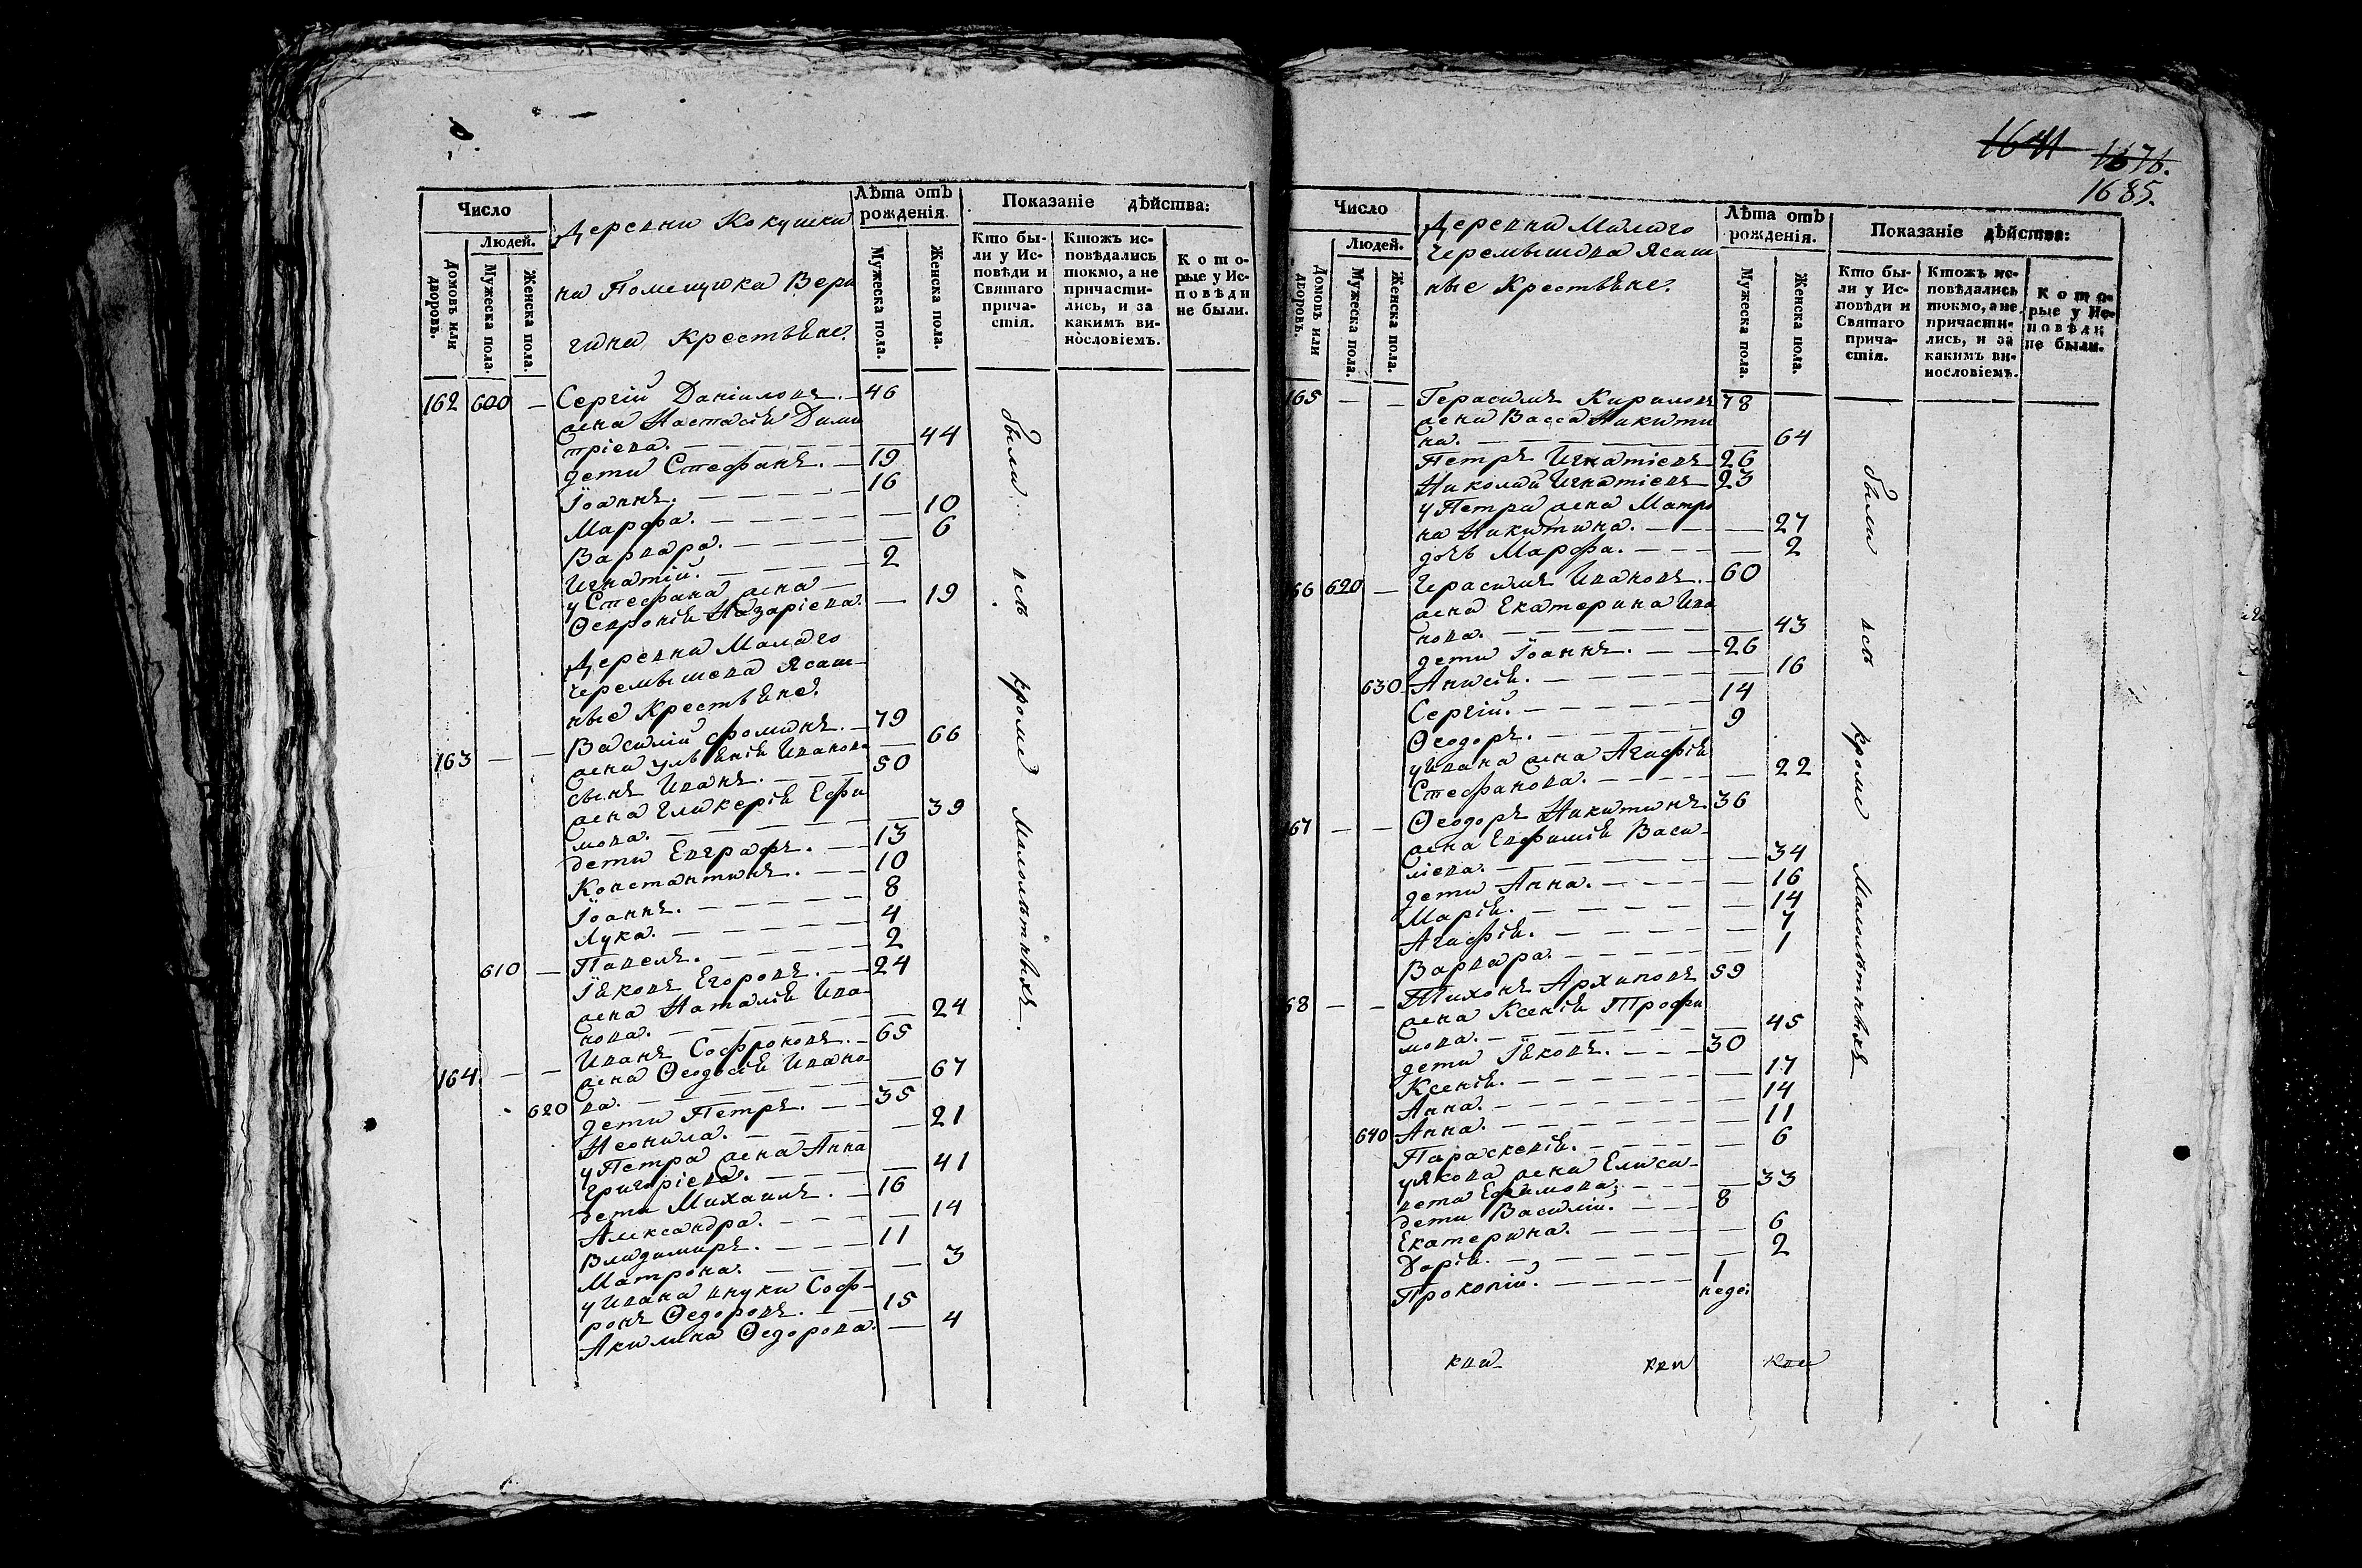 1641 1676.
1685.
Число
Людей.
Домовъ или дворовъ.
Мужеска пола.
Женска пола.
Деревни Кокушки
на Помещика Вери
гина Крестьяне.
Лѣта отъ рожденія.
Мужеска пола.
Женска пола.
Показаніе дѣйства:
Кто бы-
ли у Ис-
повѣди и
Святаго
прича-
стія.
Ктожъ ис-
повѣдались
токмо, а не
причасти-
лись, и за
какимъ ви-
нословіемъ.
Кото-
рые у Ис-
повѣди
не были.
162 600 — Сергій Даніиловъ. — 46
жена Настасія Дими
тріева. — 44
дети Стефанъ. — 19
Іоаннъ. — 16
Марфа. — 10
Варвара. — 6
Игнатій. — 2
у Стефана жена —
Февронія Назаріева. — 19
Деревни Малаго
Черемышева Ясаш-
ные Крестьяне.
163 — — Василій Фоминъ. — 79
жена Ульянія Иванова — 66
сынъ Иванъ. — 50
жена Гликерія Ефи
мова. — 39
дети Евграфъ. — 13
Константинъ. — 10
Іоаннъ. — 8
Лука. — 4
610 — Павелъ. — 2
Іяковъ Егоровъ. — 24
жена Наталія Ива-
нова. — 24
164 — — Иванъ Софроновъ. — 65
жена Феодосія Ивано
620 ва. — 67
дети Петръ. — 35
Неонила. — 21
у Петра жена Анна
Григоріева. — 41
дети Михаилъ. — 16
Александра. — 14
Владимиръ. — 11
Матрона. — 3
у Ивана внуки Соф-
ронъ Федоровъ. — 15
Акилина Федорова. — 4
были всѣ кроме Малолѣтныхъ.
Число
Людей.
Домовъ или дворовъ.
Мужеска пола.
Женска пола.
Деревни Малаго
Черемышева Ясаш
ные Крестьяне.
Лѣта отъ рожденія.
Мужеска пола.
Женска пола.
Показаніе дѣйства:
Кто бы-
ли у Ис-
повѣди и
Святаго
прича-
стія.
Ктожъ ис-
повѣдались
токмо, а не
причасти-
лись, и за
какимъ ви-
нословіемъ.
Кото-
рые у Ис-
повѣди
не были.
165 — — Герасимъ Кириловъ 78
жена Васса Никити
на. — 64
Петръ Игнатіевъ 26
Николай Игнатіевъ 23
у Петра жена Матро
на Никитина. — 27
дочь Марфа. — 2
66 620 — Герасимъ Ивановъ. — 60
жена Екатерина Ива
нова. — 43
дети Іоаннъ. — 26
630 Анисія. — 16
Сергій. — 14
Феодоръ. — 9
у Ивана жена Агафія
Стефанова. — 22
67 — — Феодоръ Никитинъ 36
жена Евфимія Васи-
ліева. — 34
дети Анна. — 16
Марія. — 14
Агафія. — 7
Варвара. — 1
68 — — Тихонъ Архиповъ 59
жена Ксенія Трофи
мова. — 45
дети Іяковъ. — 30
Ксенія. — 17
Анна. — 14
Анна. — 11
640 Параскевія. — 6
у Якова жена Елиса-
вета Ефимова. — 33
дети Василій. — 8
Екатерина. — 6
Дарія. — 2
Прокопій. — 1
недѣ:
были всѣ кроме Малолѣтныхъ